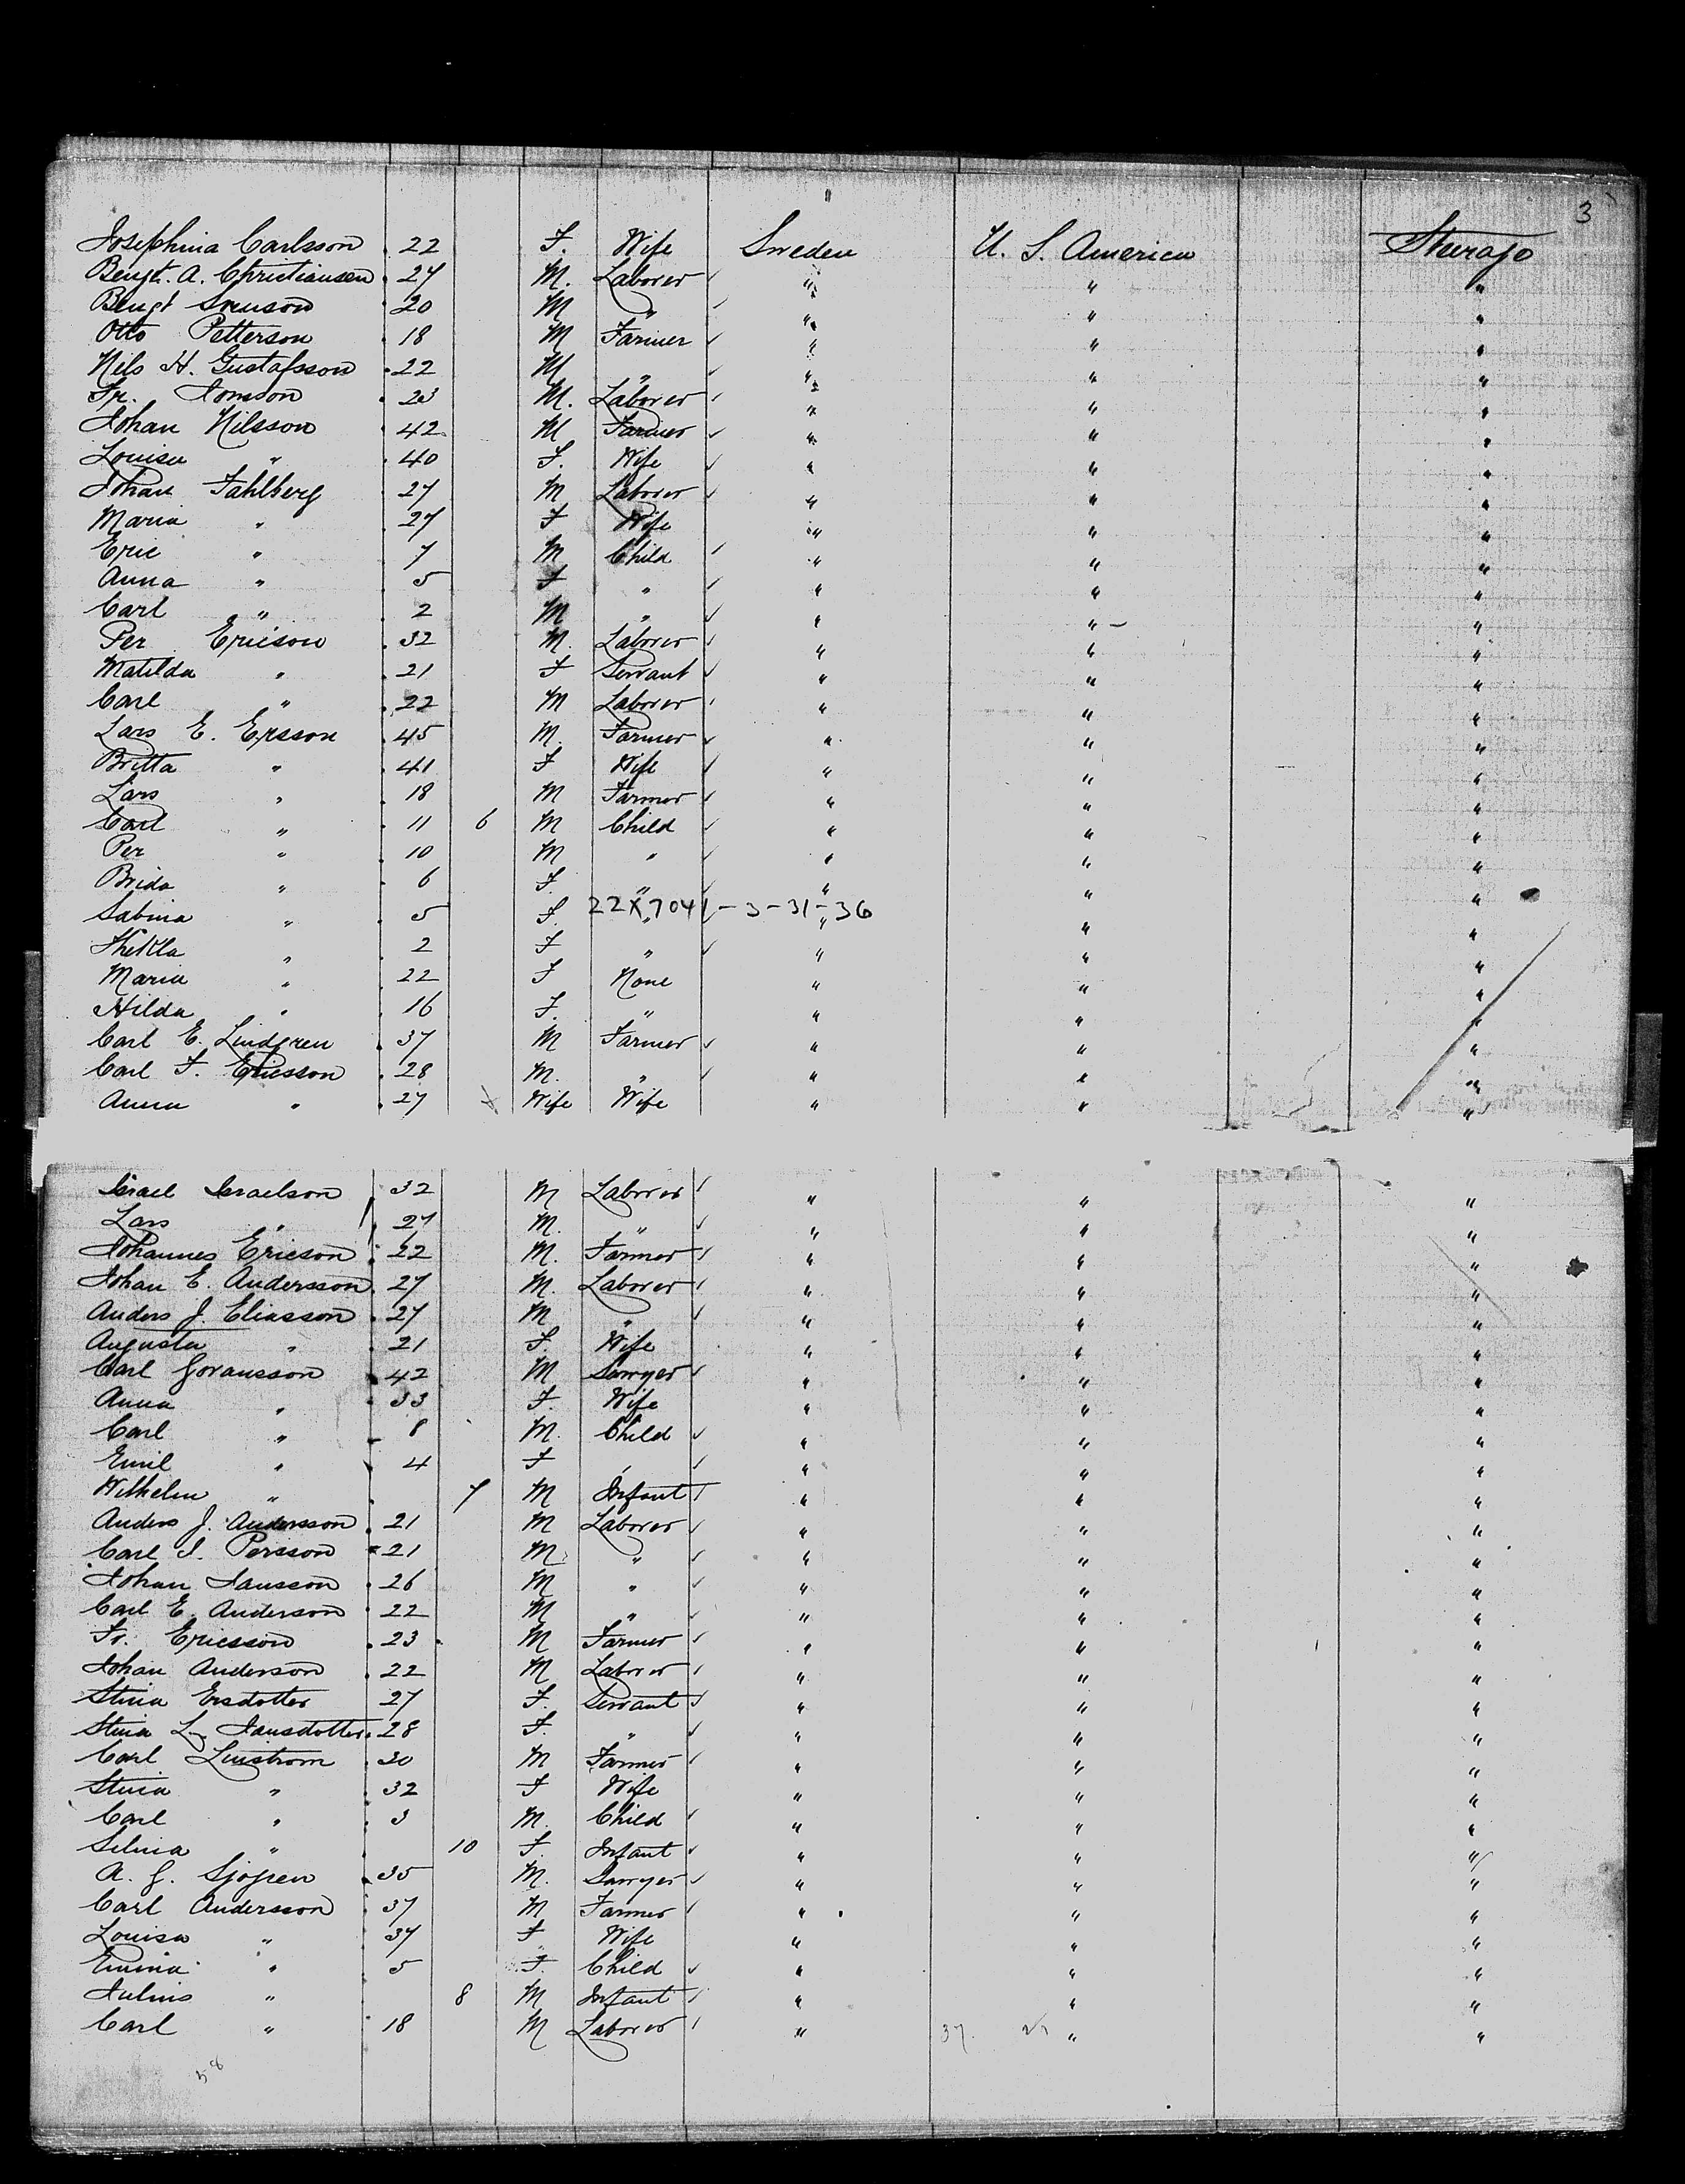 3
"
Josephina Carlsson . 22 F. Wife Sweden U. S. America Sturage
Bengt. A. Christiansen . 27 M. Laborer " " "
Bengt Svenson . 20 M " " " "
Otto Petterson . 18 M Farmer " " "
Nils H. Gustafsson . 22 M " " " "
Fr. Jonsson . 23 M. Laborer " " "
Johan Nilsson . 42 M Farmer " " "
Louisa " . 40 F. Wife " " "
Johan Fahlberg . 27 M Laborer " " "
Maria " . 27 F Wife " " "
Eric " 7 M Child " " "
Anna " . 5 F " " " "
Carl " . 2 M " " " "
Per Ericson . 32 M. Laborer " " "
Matilda " . 21 F Servant " " "
Carl " . 22 M Laborer " " "
Lars E. Ersson . 45 M. Farmer " " "
Britta " . 41 F Wife " " "
Lars " . 18 M Farmer " " "
Carl " . 11 6 M Child " " "
Per " . 10 M " " " "
Brida " . 6 F. " " " "
22X7041-3-31-36
Sabina " . 5 F. " " " "
Thekla " . 2 F " " " "
Maria " . 22 F None " " "
Hilda " . 16 F. " " " "
Carl E. Lindgren . 37 M Farmer " " "
Carl F. Ericsson . 28 M. " " " "
Anna " . 27 Wife Wife " " "
Israel Israelson . 32 M Laborer " " "
Lars " . 27 M. " " " "
Johannes Ericson . 22 M. Farmer " " "
Johan E. Andersson . 27 M. Laborer " " "
Anders J. Eliasson . 27 M " " " "
Augusta " . 21 F. Wife " " "
Carl Goransson . 42 M Sawyer " " "
Anna " . 33 F. Wife " " "
Carl " 8 M. Child " " "
Emil " . 4 F " " " "
Wilhelm " . 7 M Infant " " "
Anders J. Andersson . 21 M Laborer " " "
Carl J. Persson . 21 M " " " "
Johan Jansson . 26 M " " " "
Carl E. Anderson . 22 M " " " "
Fr. Ericsson . 23 M Farmer " " "
Johan Anderson . 22 M Laborer " " "
Stina Ersdotter 27 F. Servant " " "
Stina L. Jansdotter . 28 F. " " " "
Carl Linstrom . 30 M Farmer " " "
Stina " . 32 F Wife " " "
Carl " . 3 M. Child " " "
Selma " 10 F. Infant " " "
A. G. Sjogren . 35 M. Sawyer " " "
Carl Andersson . 37 M Farmer " " "
Louisa " 37 F Wife " " "
Emma " 5 F. Child " " "
Julius " 8 M Infant " " "
Carl " . 18 M Laborer " 37. " "
58